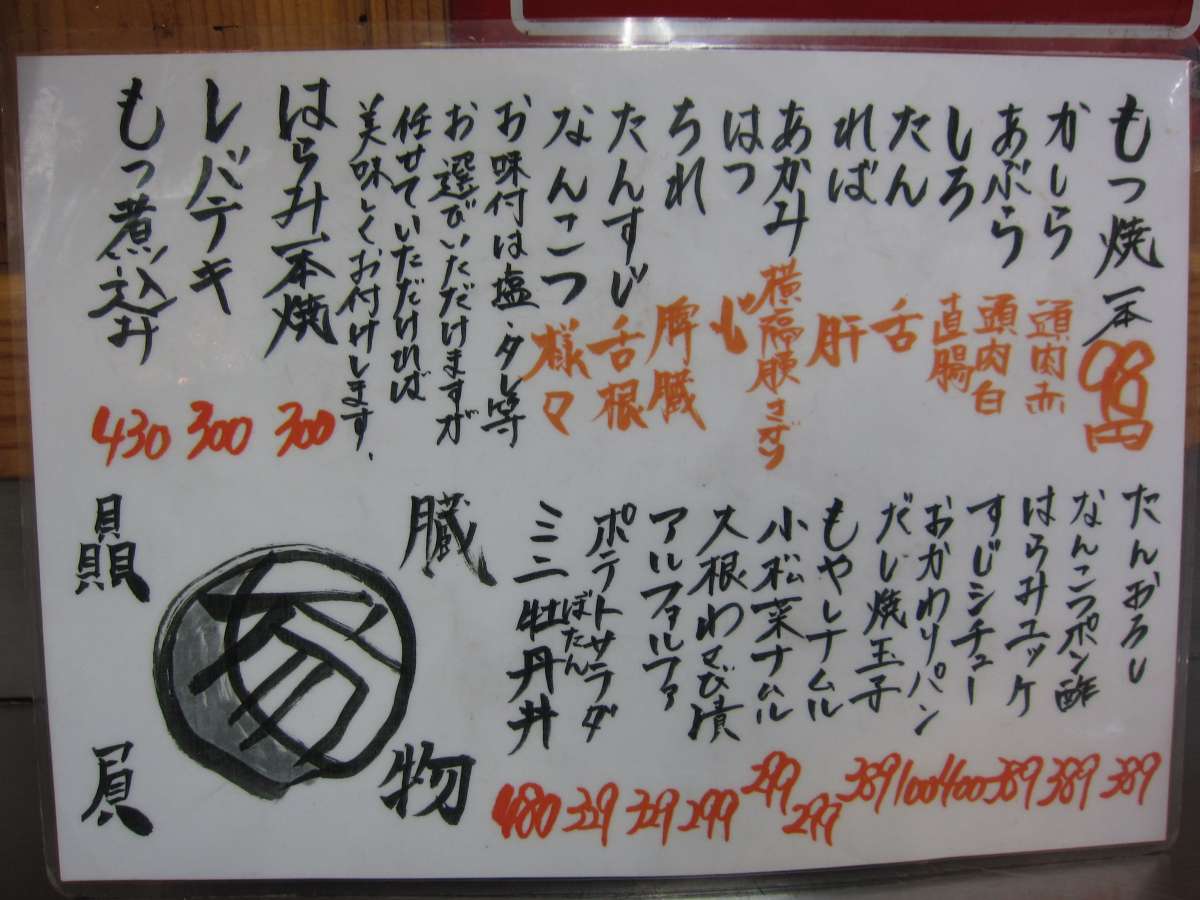 もつ焼一本98円
かしら 頭肉赤
あぶら 頭肉白
しろ 直腸
たん 舌
ればー 肝
あかみ 横隔膜さがり
はつ 心
ちれ 脾臓
たんすじ 舌根
なんこつ 様々
お味付は塩・タレ等
お選びいただけますが
任せていただければ
美味しくお付けします、
はらみ一本焼 300
レバテキ 300
もつ煮込み 430
たんおろし 389
なんこつポン酢 389
はらみユッケ 389
すじシチュー 400
おかわりパン 100
だし焼玉子 389
もやしナムル 299
小松菜ナムル 299
大根わさび漬 299
アルファルファ 329
ポテトサラダ 329
ミニ牡丹丼 480
ぼたん
臓物
贔屓